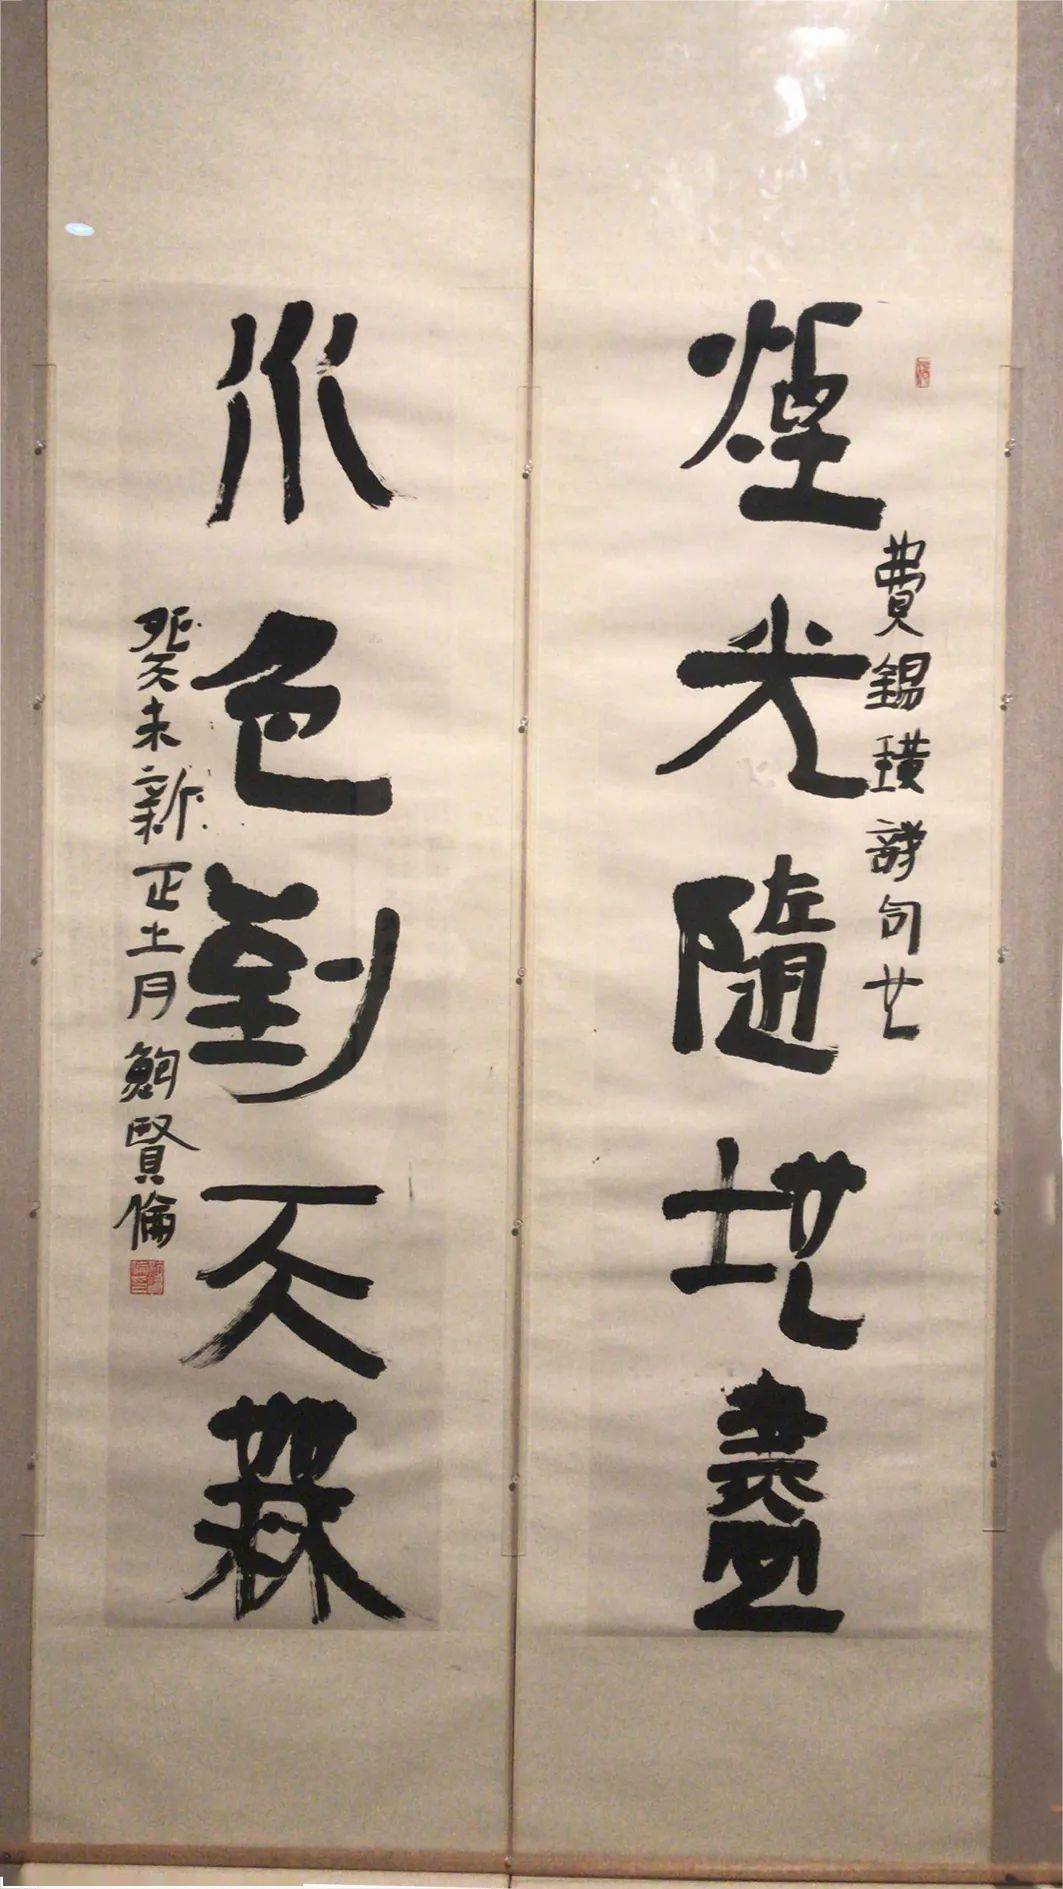 煙光隨地盡
費錫璜詩句也
水色到天無
癸未新正之月鮑賢倫